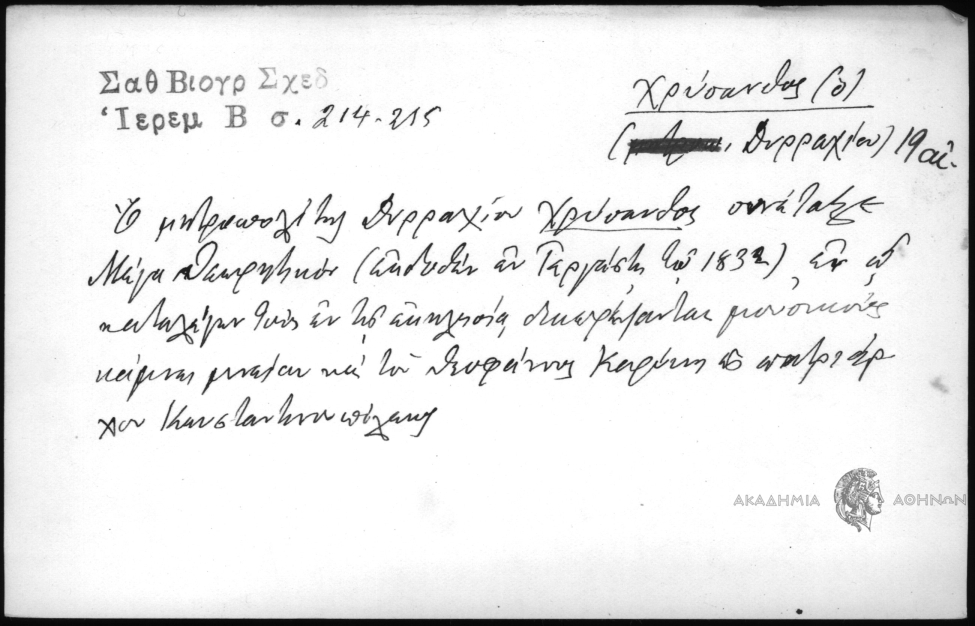 Σαθ Βιογρ Σχεδ
Ἱερεμ Β σ. 214-215
Χρύσανθος (ὁ)
( , Δυρραχίου) 19 αἰ.
Ὁ μητροπολίτης Δυρραχίου Χρύσανθος συνέταξε
Μέγα Θεωρητικόν (ἐκδοθέν ἐν Τεργέστῃ τῷ 1832) ἐν ᾧ
καταλέγων τούς ἐν τῇ ἐκκλησίᾳ διαπρέψαντας μουσικούς
κάμνει μνείαν καί τοῦ Θεοφάνους Καρύκη ὡς πατριάρ
χου Κωνσταντινουπόλεως
ΑΚΑΔΗΜΙΑ ΑΘΗΝΩΝ